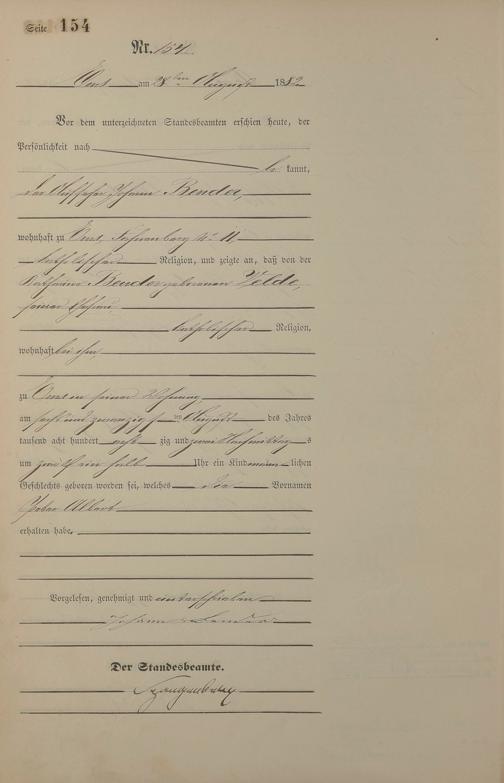 Seite 154
Nr. 154.
Ems am 28ten August 1882
Vor dem unterzeichneten Standesbeamten erschien heute, der
Persönlichkeit nach
be kannt,
der Aufseher Johann Bender,
wohnhaft zu Ems,
katholischer Religion, und zeigte an, daß von der
Katharina Bender geborenen
seiner Ehefrau
katholischer Religion,
wohnhaft bei ihm,
zu Ems in seiner Wohnung,
am sechs und zwanzigsten August des Jahres
tausend acht hundert acht zig und zwei Nachmittags
um zwölf ein halb Uhr ein Kind männ lichen
Geschlechts geboren worden sei, welches die Vornamen
Peter Albert
erhalten habe.
Vorgelesen, genehmigt und unterschrieben
Johann Bender
Der Standesbeamte.